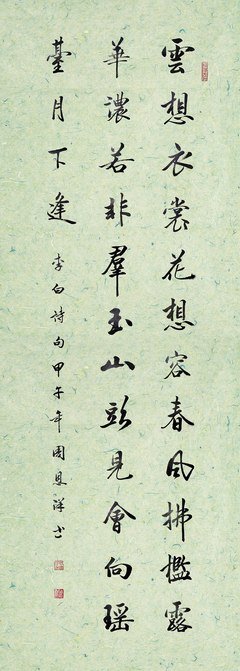 雲想衣裳花想容春風拂檻露
華濃若非羣玉山頭見會向瑤
臺月下逢 李白詩句甲午年周恩洋书